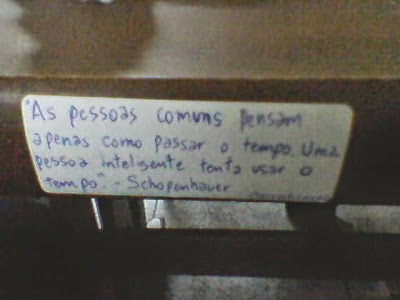 "As pessoas comuns pensam
apenas como passar o tempo. Uma
pessoa inteligente tenta usar o
tempo". - Schopenhauer